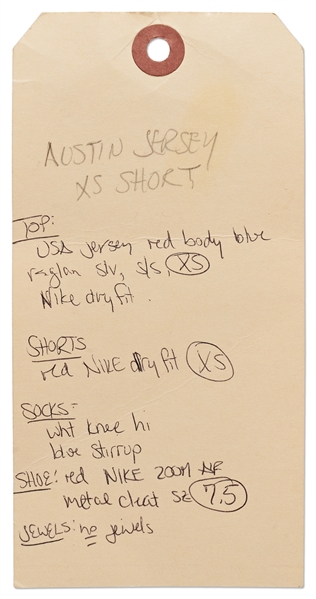 AUSTIN JERSEY
XS SHORT
TOP:
USA jersey red body blue
raglan slv, s/s, XS
Nike dry fit.
SHORTS
red NIKE dry fit XS
SOCKS:
wht knee hi
blue stirrup
SHOE: red NIKE ZOOM
metal cleat SZ 7.5
JEWELS: no jewels